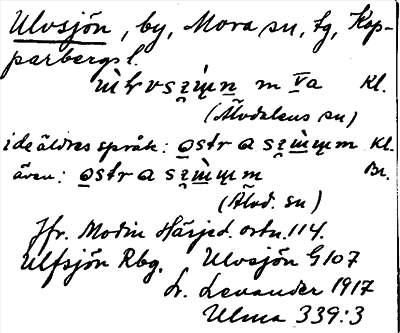 Ulvsjön, by, Mora sn, fg, Kop-
parbergs l.
m Va Kl.
(Älvdalens sn)
i de äldres språk: Kl.
även: Br.
(Älvd. sn)
Jfr. Modin Härjed. ortn. 114.
Ulfsjön Rbg. Ulvsjön G 107
Lr. Levander 1917
Ulma 339:3